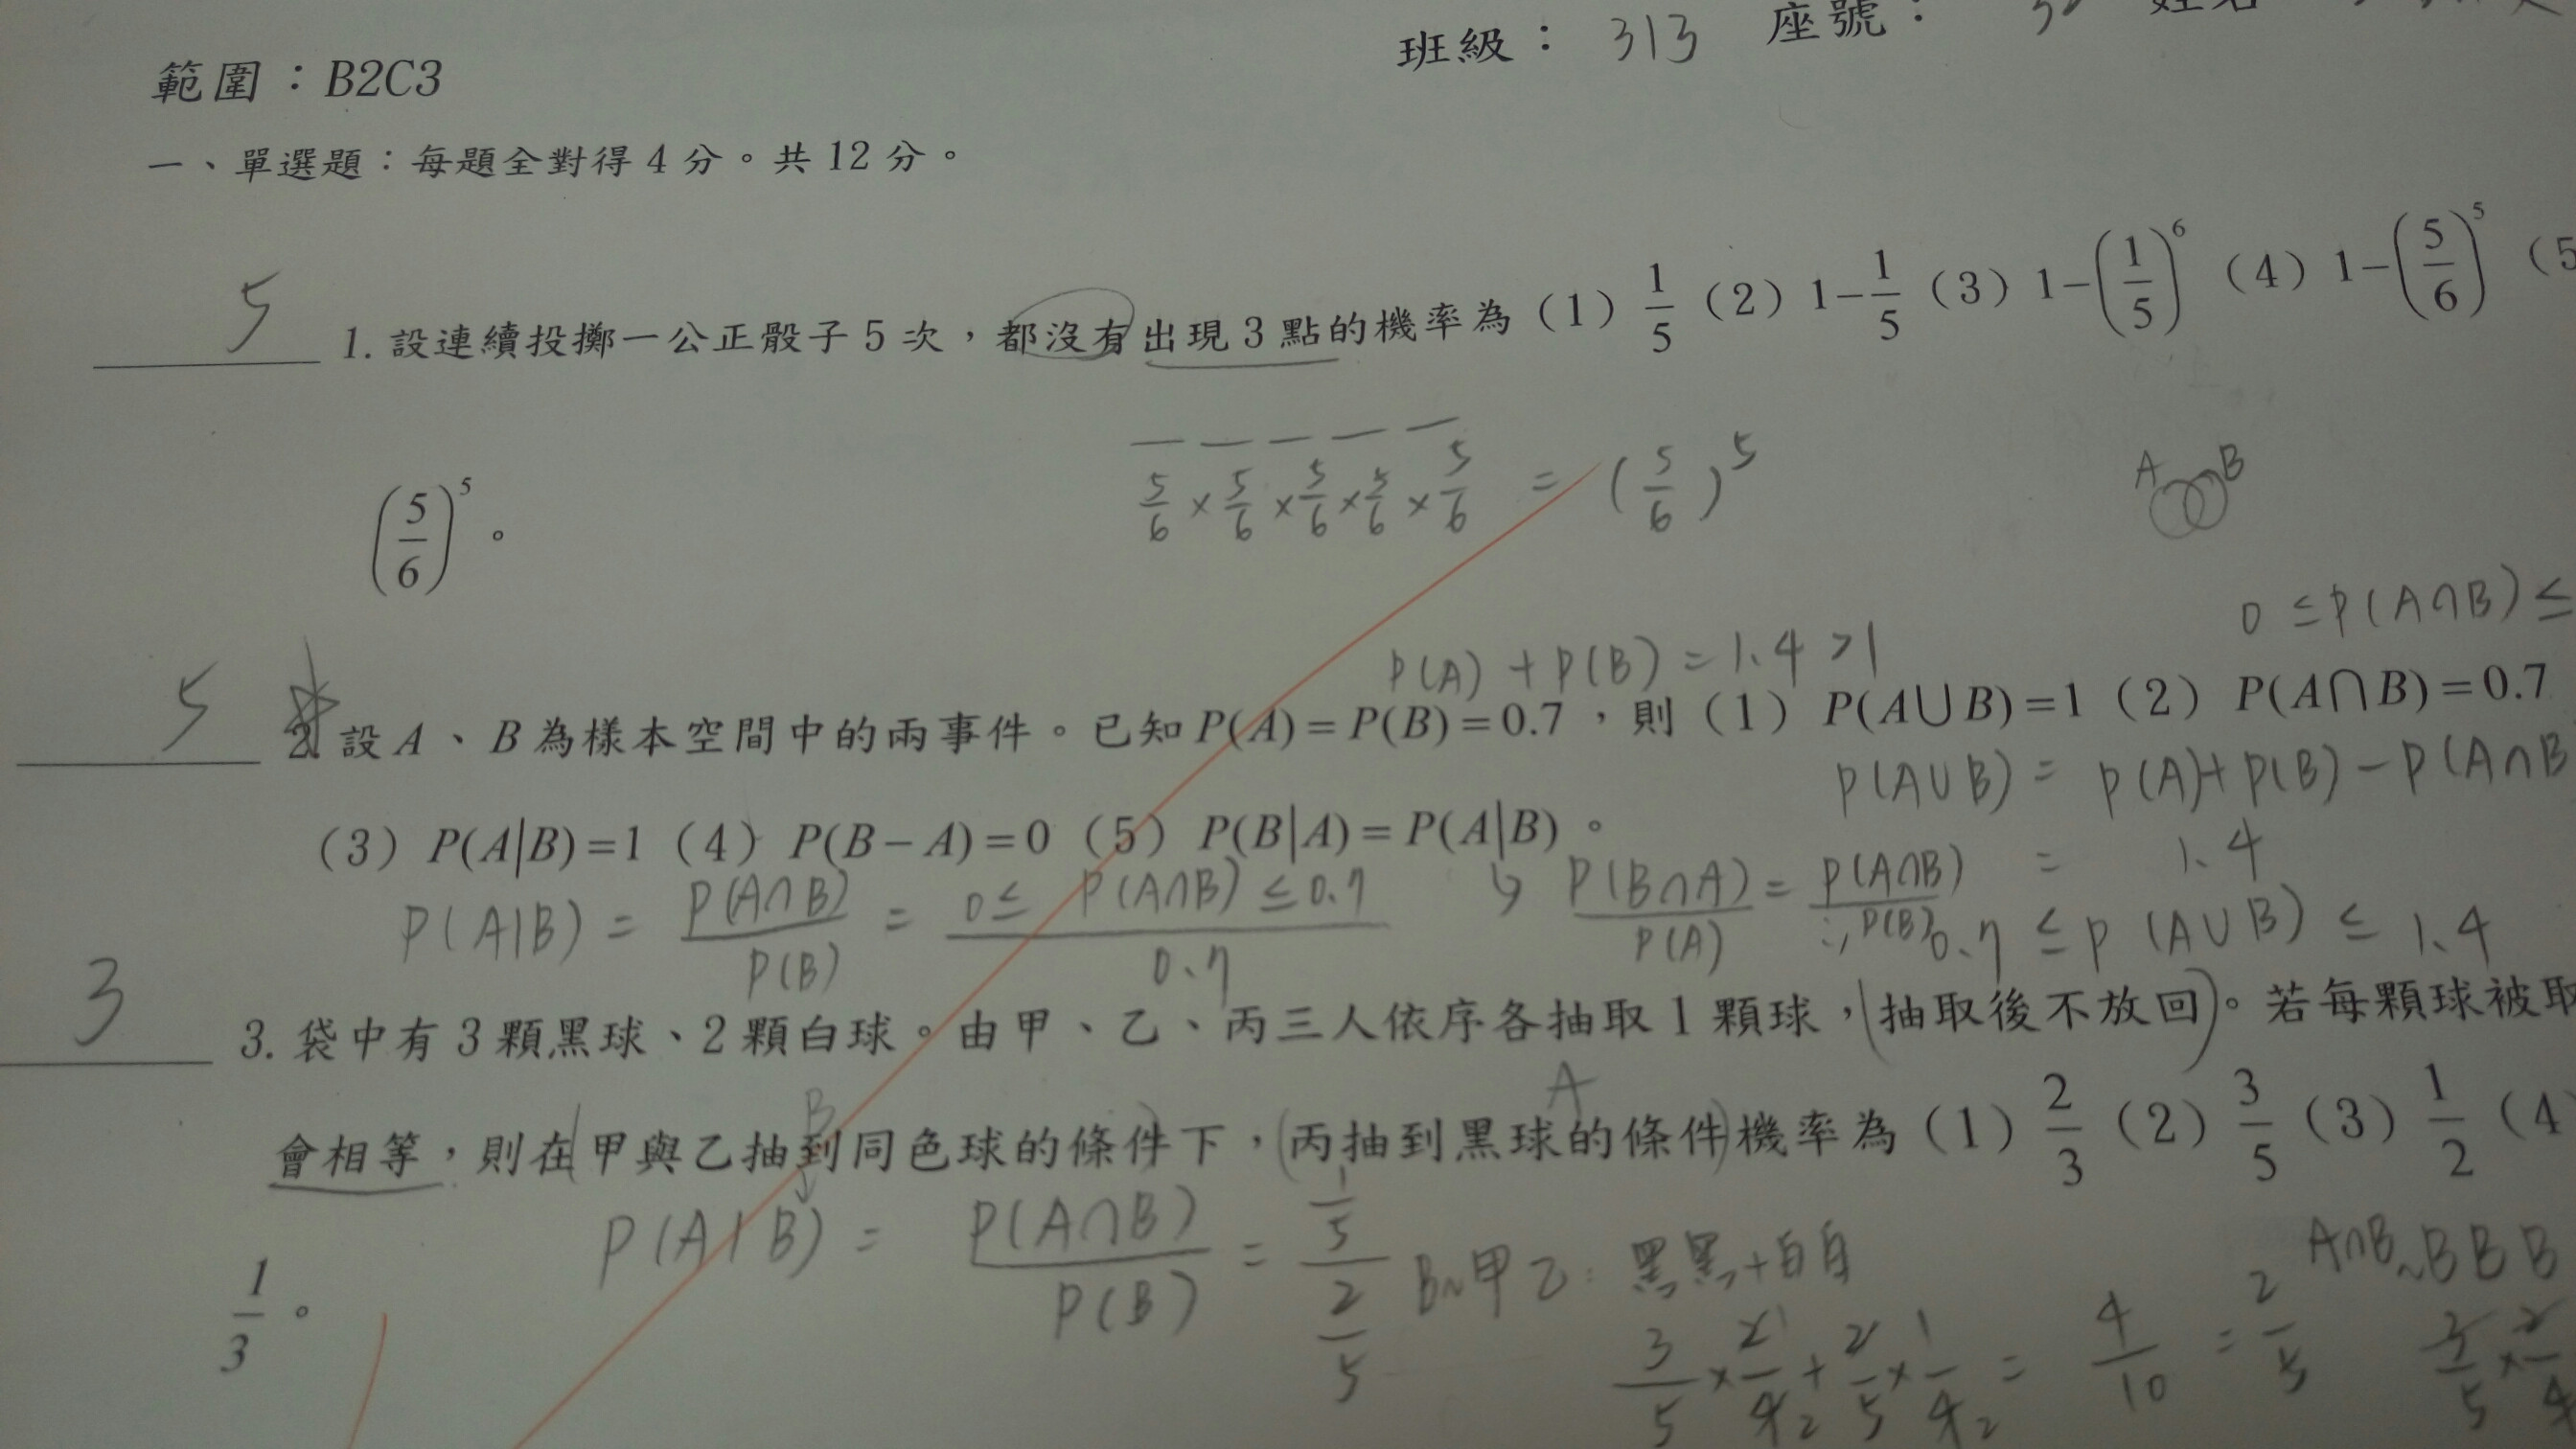 班級： 313 座號：
範圍：B2C3
一、單選題：每題全對得 4 分。共 12 分。
5 1. 設連續投擲一公正骰子 5 次，都沒有出現 3 點的機率為（1）1/5（2）1−1/5（3）1−(1/5)^6（4）1−(5/6)^5（5
5/6 × 5/6 × 5/6 × 5/6 × 5/6 = (5/6)^5
A B
(5/6)^5 。
0 ≤ P(A∩B) ≤
P(A) + P(B) = 1.4 > 1
5 2. 設 A、B 為樣本空間中的兩事件。已知 P(A) = P(B) = 0.7，則（1）P(A∪B) = 1（2）P(A∩B) = 0.7
P(A∪B) = P(A) + P(B) − P(A∩B
（3）P(A|B) = 1（4）P(B − A) = 0（5）P(B|A) = P(A|B)。
= 1.4
P(A|B) = P(A∩B)/P(B) = 0 ≤ P(A∩B) ≤ 0.7/0.7 ↳ P(B∩A)/P(A) = P(A∩B)/P(B)
∴ 0.7 ≤ P(A∪B) ≤ 1.4
3 3. 袋中有 3 顆黑球、2 顆白球。由甲、乙、丙三人依序各抽取 1 顆球，(抽取後不放回)。若每顆球被取
B A
會相等，則在(甲與乙抽到同色球的條件)下，(丙抽到黑球的條件)機率為（1）2/3（2）3/5（3）1/2（4
P(A|B) = P(A∩B)/P(B) = 1/5 / 2/5 B~甲乙: 黑黑+白白 A∩B~BBB
1/3 。
3/5 × 2/4 + 2/5 × 1/4 = 4/10 = 2/5 3/5 × 2/4